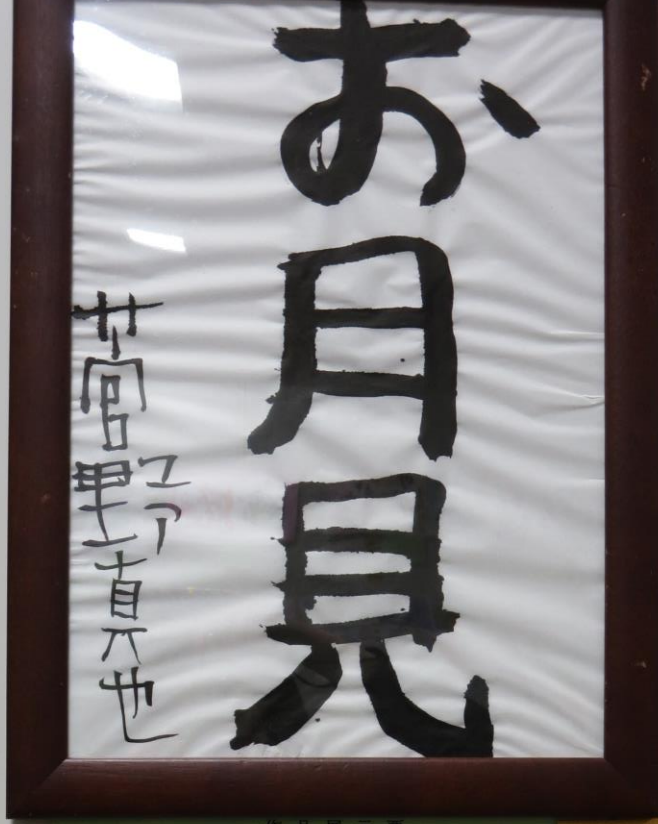 お月見
菅野真也